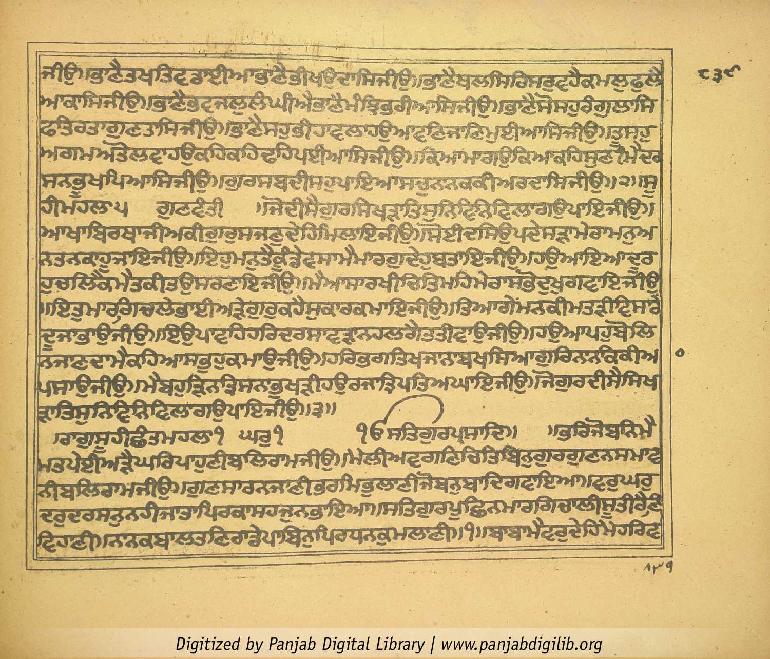 ਜੀਉ॥ਭਾਣੈਤਖਤਿਵਡਾਈਆਭਾਣੈਭੀਖਉਦਾਸਿਜੀਉ॥ਭਾਣੈਥਲਸਿਰਿਸਰੁਵਹੈਕਮਲੁਫੁਲੈ
ਆਕਾਸਿਜੀਉ॥ਭਾਣੈਭਵਜਲੁਲੰਘੀਐਭਾਣੈਮੰਝਿਭਰੀਆਸਿਜੀਉ॥ਭਾਣੈਸੋਸਹੁਰੰਗੁਲਾਸਿ
ਫਤਿਰਤਾਗੁਣਤਾਸਿਜੀਉ॥ਭਾਣੈਸਹੁਭੀਹਾਵਲਾਹਉਆਵਣਿਜਾਣਿਮੁਈਆਸਿਜੀਉ॥ਤੂਸਹੁ
ਅਗਮਅਤੋਲਵਾਹਉਕਹਿਕਹਿਢਹਿਪਈਆਸਿਜੀਉ॥ਕਿਆਮਾਗਉਕਿਆਕਹਿਸੁਣੀਮੈਦਰ
ਸਨਭੂਖਪਿਆਸਿਜੀਉ॥ਗੁਰਸਬਦੀਸਹੁਪਾਇਆਸਚੁਨਨਕਕੀਅਰਦਾਸਿਜੀਉ॥੨॥ਸੂ
ਹੀਮਹਲਾ੫ ਗੁਣਵੰਤੀ ॥ਜੋਦੀਸੈਗੁਰਸਿਖੜਾਤਿਸੁਨਿਵਿਨਿਵਿਲਾਗਉਪਾਇਜੀਉ॥
ਆਖਾਬਿਰਥਾਜੀਅਕੀਗੁਰੁਸਜਣੁਦੇਹਿਮਿਲਾਇਜੀਉ॥ਸੋਈਦਸਿਉਪਦੇਸੜਾਮੇਰਾਮਨੁਅ
ਨਤਨਕਾਹੂਜਾਇਜੀਉ॥ਇਹੁਮਨੁਤੈਕੂੰਡੇਵਸਾਮੈਮਾਰਗੁਦੇਹੁਬਤਾਇਜੀਉ॥ਹਉਆਇਆਦੂਰ
ਹੁਚਲਿਕੈਮੈਤਕੀਤਉਸਰਣਾਇਜੀਉ॥ਮੈਆਸਾਰਖੀਚਿਤਿਮਹਿਮੇਰਾਸਭੋਦੁਖੁਗਵਾਇਜੀਉ
॥ਇਤੁਮਾਰਗਿਚਲੇਭਾਈਅੜੇਗੁਰੁਕਹੈਸੁਕਾਰਕਮਾਇਜੀਉ॥ਤਿਆਗੇਂਮਨਕੀਮਤੜੀਵਿਸਾਰੇਂ
ਦੂਜਾਭਾਉਜੀਉ॥ਇਉਪਾਵਹਿਹਰਿਦਰਸਾਵੜਾਨਹਲਗੈਤਤੀਵਾਉਜੀਉ॥ਹਉਆਪਹੁਬੋਲਿ
ਨਜਾਣਦਾਮੈਕਹਿਆਸਭੁਹੁਕਮਾਉਜੀਉ॥ਹਰਿਭਗਤਿਖਜਾਨਾਬਖਸਿਆਗੁਰਿਨਾਨਕਿਕੀਅ
ਪਸਾਉਜੀਉ॥ਮੈਬਹੁੜਿਨਤ੍ਰਿਸਨਭੁਖੜੀਹਉਰਜਾਤ੍ਰਿਪਤਿਅਘਾਇਜੀਉ॥ਜੋਗੁਰਦੀਸੈਸਿਖ
ੜਾਤਿਸੁਨਿਵਿਨਿਵਿਲਾਗਉਪਾਇਜੀਉ॥੩॥
ਰਾਗੁਸੂਹੀਛੰਤਮਹਲਾ੧ ਘਰੁ੧ ੴਸਤਿਗੁਰਪ੍ਰਸਾਦਿ॥ ॥ਭਰਿਜੋਬਨਿਮੈ
ਮਤਪੇਈਅੜੈਘਰਿਪਾਹੁਣੀਬਲਿਰਾਮਜੀਉ॥ਮੈਲੀਅਵਗਣਿਚਿਤਿਬਿਨੁਗੁਰਗੁਣਨਸਮਾਵ
ਨੀਬਲਿਰਾਮਜੀਉ॥ਗੁਣਸਾਰਨਜਾਣੀਭਰਮਿਭੁਲਾਣੀਜੋਬਨੁਬਾਦਿਗਵਾਇਆ॥ਵਰੁਘਰੁ
ਦਰੁਦਰਸਨੁਨਹੀਜਾਤਾਪਿਰਕਾਸਹਜੁਨਭਾਇਆ॥ਸਤਿਗੁਰਪੂਛਿਨਮਾਰਗਿਚਾਲੀਸੂਤੀਰੈਣਿ
ਵਿਹਾਣੀ॥ਨਾਨਕਬਾਲਤਣਿਰਾਡੇਪਾਬਿਨੁਪਿਰਧਨਕੁਮਲਾਣੀ॥੧॥ਬਾਬਾਮੈਵਰੁਦੇਹਿਮੈਹਰਿਵ
Digitized by Panjab Digital Library | www.panjabdigilib.org